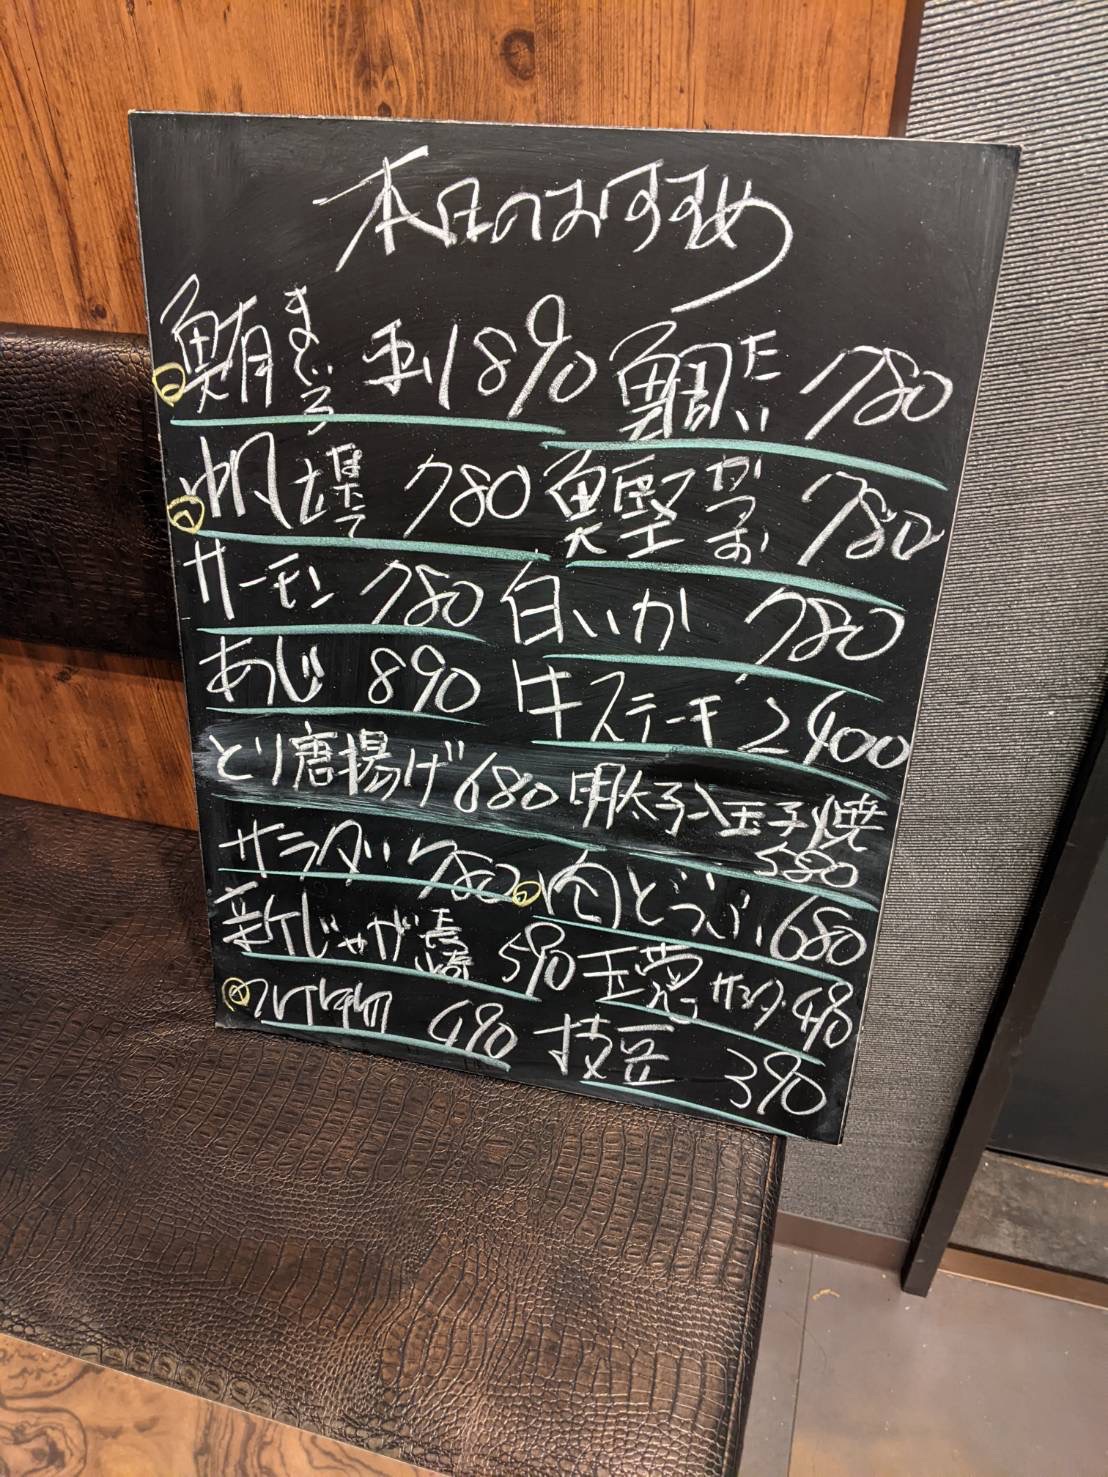 本日のおすすめ
鮪 まぐろ 1890 鯛 たい 780
帆立 ほたて 780 鰹 かつお 780
サーモン 780 白いか 780
あじ 890 牛ステーキ 2400
とり唐揚げ 680 明太子入玉子焼 580
サラダ 780 肉どうふ 680
新じゃが 長崎 590 玉葱サラダ 490
つけ物 490 枝豆 390